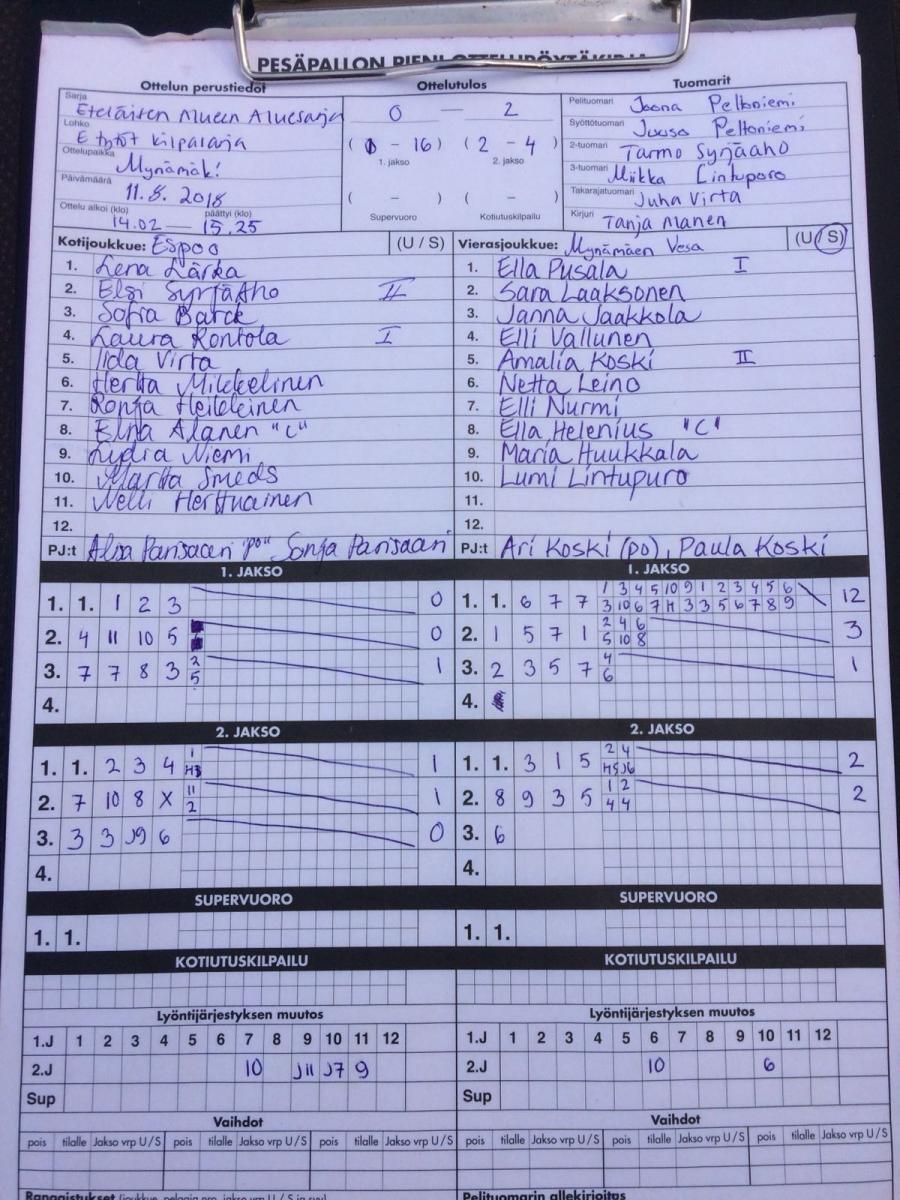 PESÄPALLON PIENI OTTELUPÖYTÄKIRJA
Ottelun perustiedot Ottelutulos Tuomarit
Sarja Eteläisten Alueen Aluesarja
Lohko E tytöt kilpasarja
Ottelupaikka Mynämäki
Päivämäärä 11.8.2018
Ottelu alkoi (klo) päättyi (klo)
14.02 — 15.25
0 — 2
( 0 - 16 ) ( 2 - 4 )
1. jakso 2. jakso
( - ) ( - )
Supervuoro Kotiutuskilpailu
Pelituomari Joona Peltoniemi
Syöttötuomari Juuso Peltoniemi
2-tuomari Tarmo Syrjäaho
3-tuomari Miikka Lintupuro
Takarajatuomari Juha Virta
Kirjuri Tanja Manen
Kotijoukkue: Espoo (U / S)
1. Lena Lärka
2. Elsi Syrjäaho II
3. Sofia Barck
4. Laura Rontola I
5. Iida Virta
6. Hertta Mikkelinen
7. Ronja Heikkinen
8. Elna Alanen "C"
9. Lydia Niemi
10. Martta Smeds
11. Nelli Herttuainen
12.
PJ:t Alisa Parisaari "po" Sonja Parisaari
Vierasjoukkue: Mynämäen Vesa (U / S)
1. Ella Pusala I
2. Sara Laaksonen
3. Janna Jaakkola
4. Elli Vallunen
5. Amalia Koski II
6. Netta Leino
7. Elli Nurmi
8. Ella Helenius "C"
9. Maria Huukkala
10. Lumi Lintupuro
11.
12.
PJ:t Ari Koski (po), Paula Koski
1. JAKSO
1. 1. 1 2 3 0
2. 4 11 10 5 0
3. 7 7 8 3 2 5 1
4.
1. JAKSO
1. 1. 6 7 7 1 3 4 5 10 9 1 2 3 4 5 6 12
3 10 6 7 H 3 3 5 6 7 8 9
2. 1 5 7 1 2 4 6 3
5 10 8
3. 2 3 5 7 4 1
6
4.
2. JAKSO
1. 1. 2 3 4 1 1
H3
2. 7 10 8 X 11 1
2
3. 3 3 J9 6 0
4.
2. JAKSO
1. 1. 3 1 5 2 4 2
H5 J6
2. 8 9 3 5 1 2 2
4 4
3. 6
4.
SUPERVUORO SUPERVUORO
1. 1. 1. 1.
KOTIUTUSKILPAILU KOTIUTUSKILPAILU
Lyöntijärjestyksen muutos
1.J 1 2 3 4 5 6 7 8 9 10 11 12
2.J 10 J11 J7 9
Sup
Lyöntijärjestyksen muutos
1.J 1 2 3 4 5 6 7 8 9 10 11 12
2.J 10 6
Sup
Vaihdot Vaihdot
pois tilalle Jakso vrp U / S pois tilalle Jakso vrp U / S pois tilalle Jakso vrp U / S
pois tilalle Jakso vrp U / S pois tilalle Jakso vrp U / S pois tilalle Jakso vrp U / S
Rangaistukset (joukkue, pelaaja nro, jakso vrp U / S ja syy)
Pelituomarin allekirjoitus